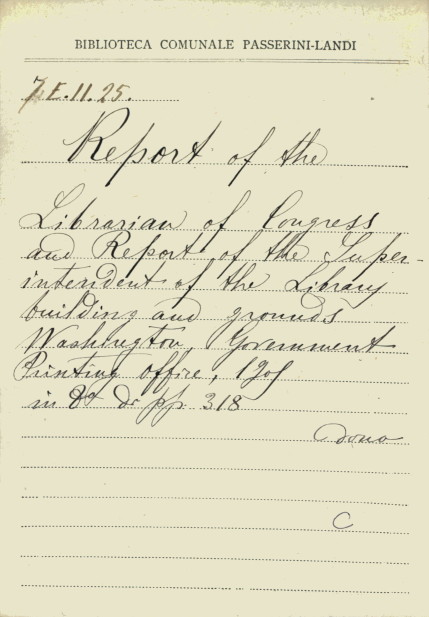 BIBLIOTECA COMUNALE PASSERINI-LANDI
7.E.11.25.
Report of the
Librarian of Congress
and Report of the Super-
intendent of the Library
building and grounds
Washington, Government
Printing office, 190
in 8° di pp. 318
dono
C